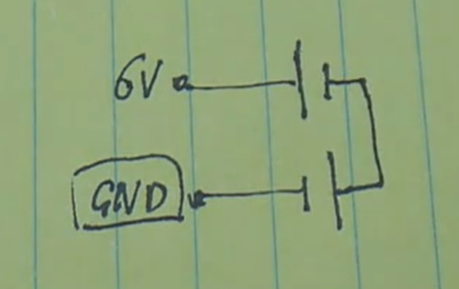 6V
GND